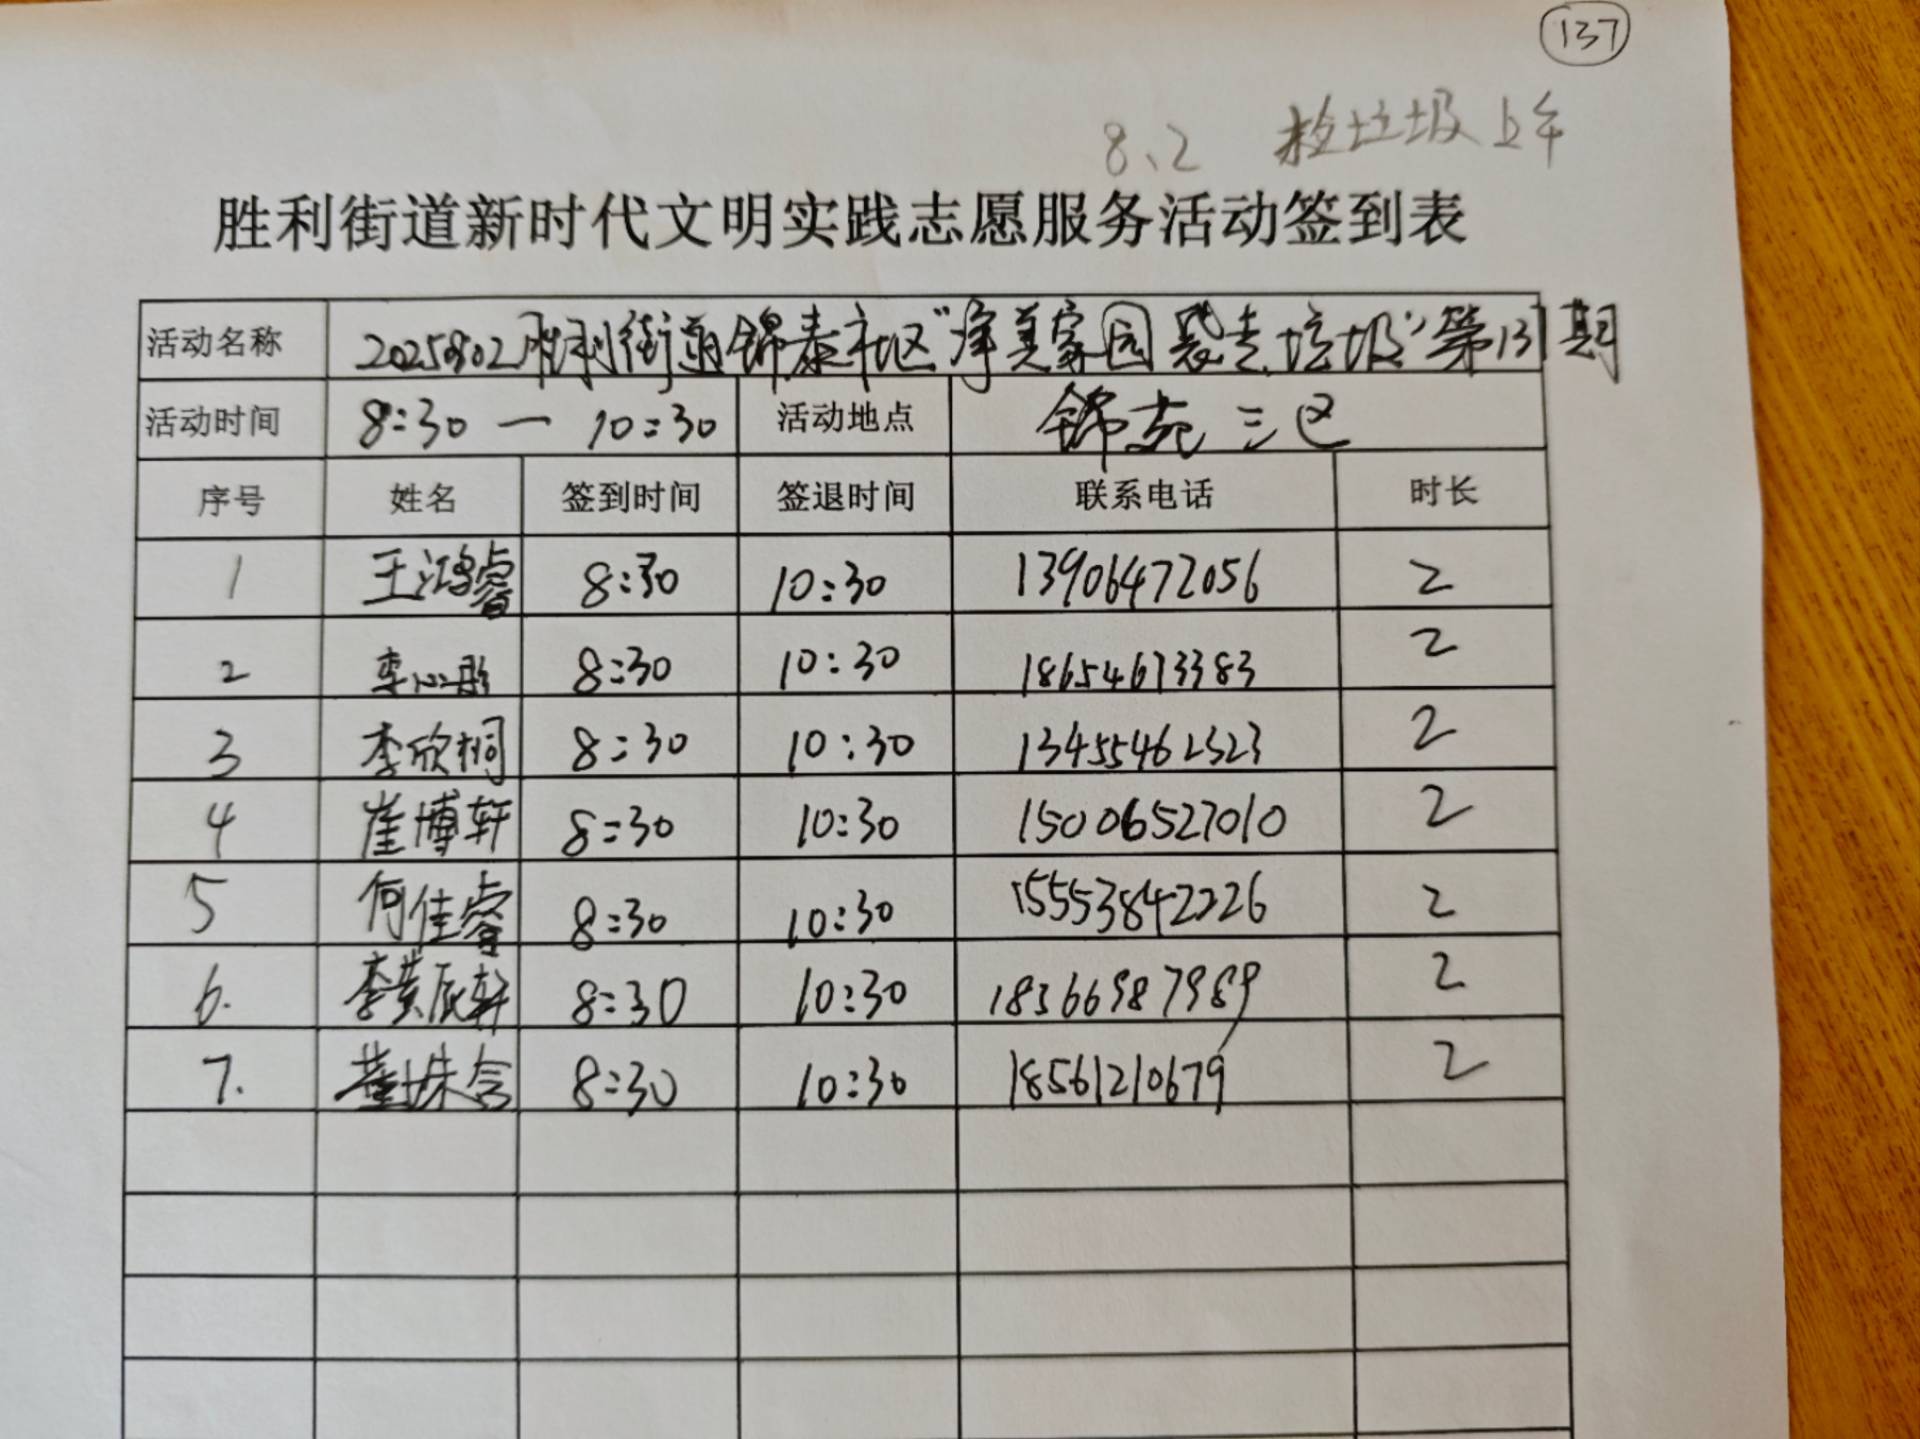 137
8.2 检垃圾上午
胜利街道新时代文明实践志愿服务活动签到表
活动名称 20250802胜利街道锦泰社区"净美家园 袋走垃圾"第137期
活动时间 8:30 — 10:30 活动地点 锦苑三区
序号 姓名 签到时间 签退时间 联系电话 时长
1 王鸿睿 8:30 10:30 13906472056 2
2 李心彤 8:30 10:30 18654673383 2
3 李欣桐 8:30 10:30 13455462323 2
4 崔博轩 8:30 10:30 15006527010 2
5 何佳睿 8:30 10:30 15553842226 2
6. 李黄辰轩 8:30 10:30 18366987989 2
7. 董姝含 8:30 10:30 18561210679 2